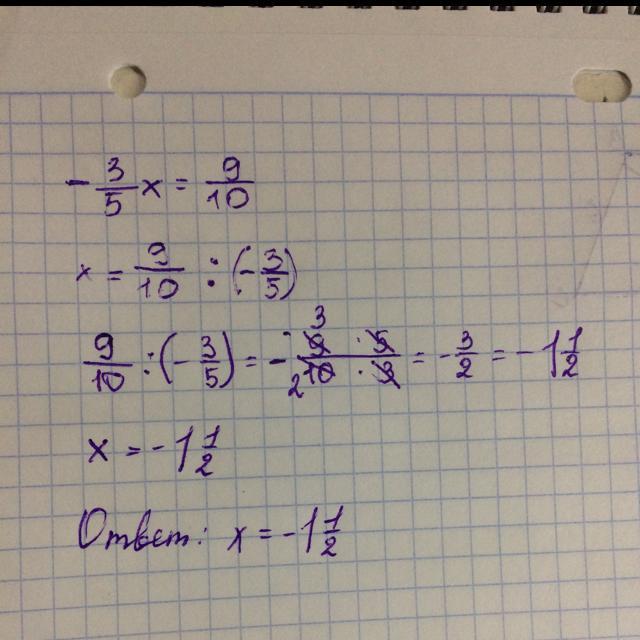 -3/5 x = 9/10
x = 9/10 : (-3/5)
9/10 : (-3/5) = - 9 3 · 5 / 2 10 · 3 = -3/2 = -1 1/2
x = -1 1/2
Ответ: x = -1 1/2